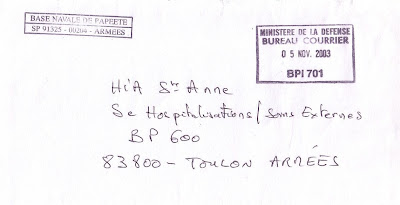 BASE NAVALE DE PAPEETE
SP 91325 - 00204 - ARMEES
MINISTERE DE LA DEFENSE
BUREAU COURRIER
0 5 NOV. 2003
BPI 701
HIA Ste Anne
Se Hospitalisations/Soins Externes
BP 600
83800 - TOULON ARMÉES